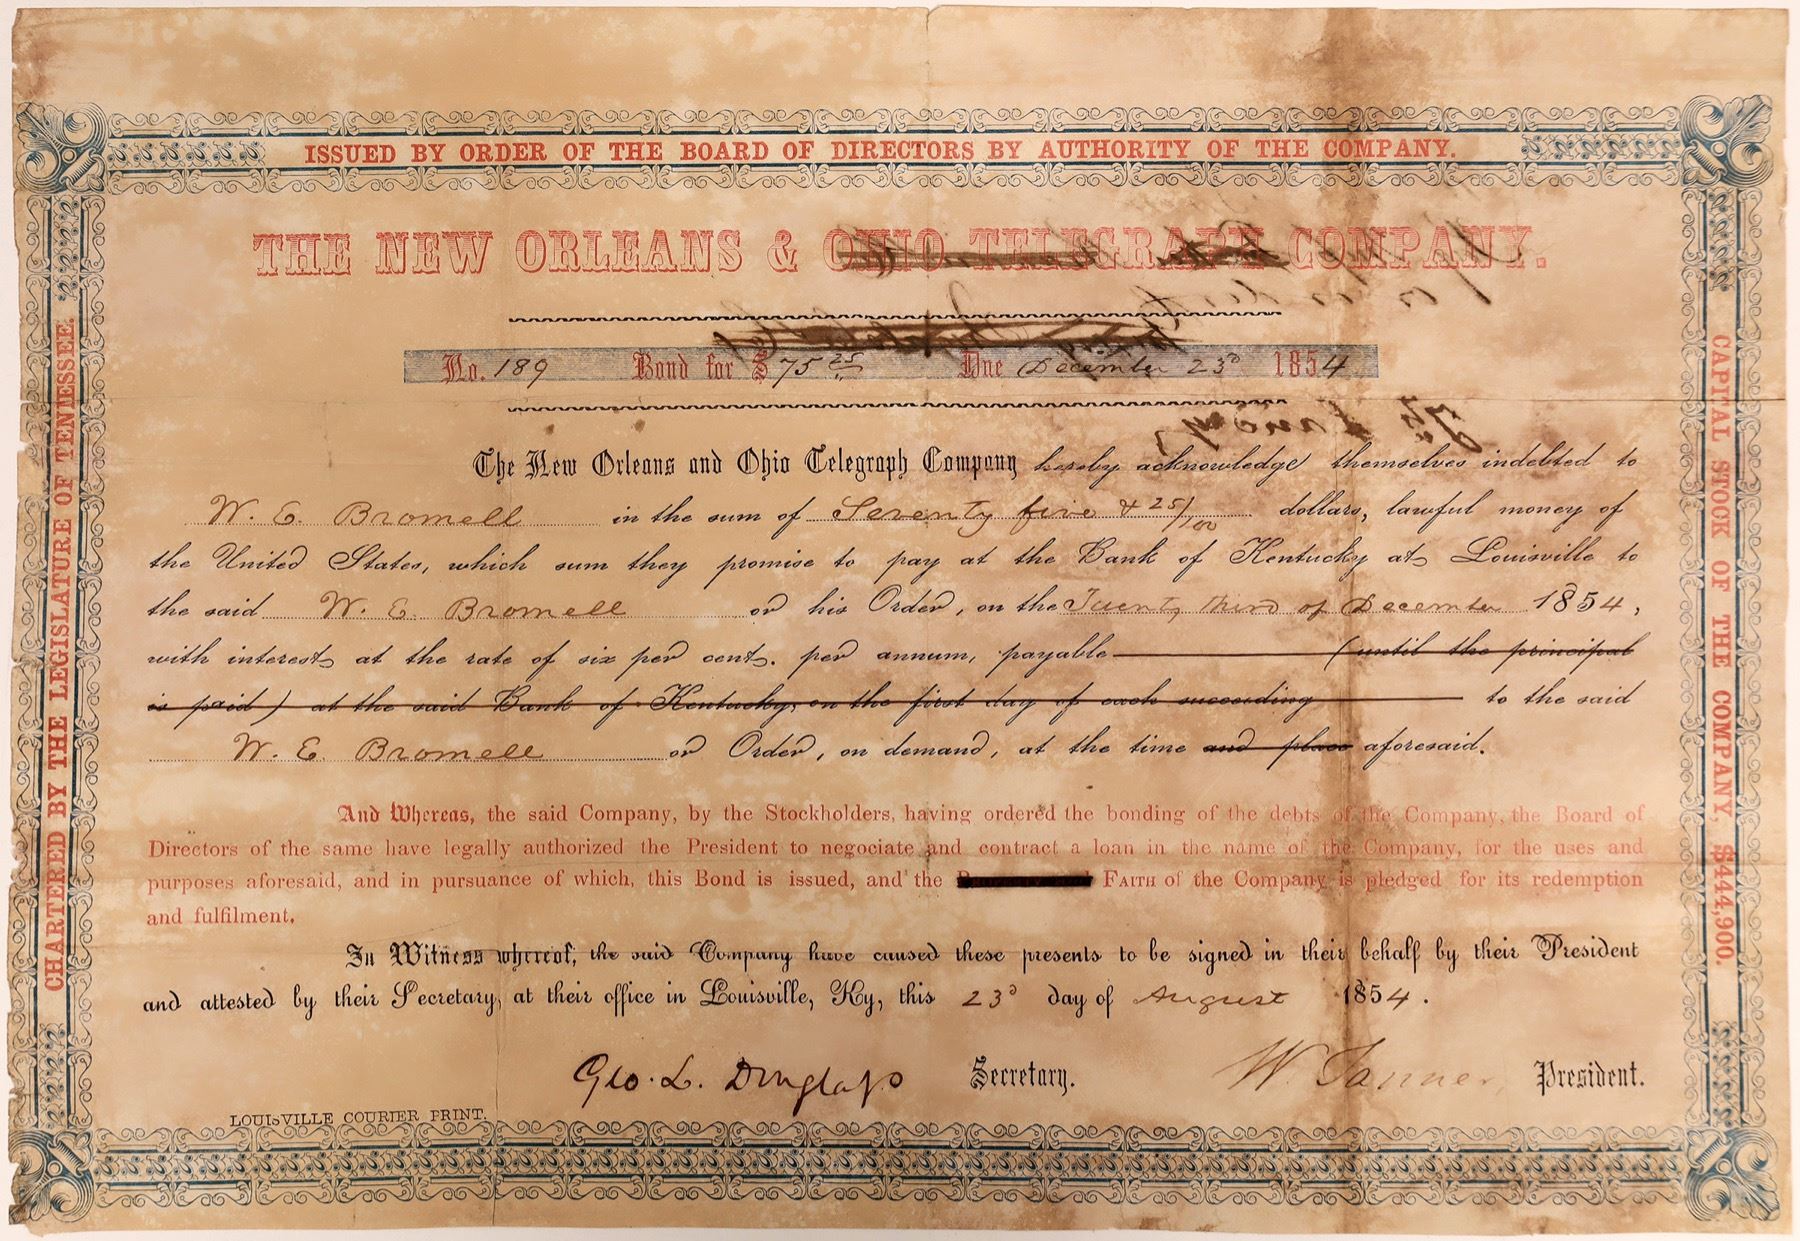 ISSUED BY ORDER OF THE BOARD OF DIRECTORS BY AUTHORITY OF THE COMPANY.
CHARTERED BY THE LEGISLATURE OF TENNESSEE.
CAPITAL STOCK OF THE COMPANY, $444,900.
THE NEW ORLEANS & OHIO TELEGRAPH COMPANY.
No. 189 Bond for $ 75 25 Due December 23d 1854
The New Orleans and Ohio Telegraph Company hereby acknowledge themselves indebted to
W. E. Bromell in the sum of Seventy five & 25/100 dollars, lawful money of
the United States, which sum they promise to pay at the Bank of Kentucky at Louisville to
the said W. E. Bromell or his Order, on the Twenty third of December 1854,
with interest at the rate of six per cent. per annum, payable (until the principal
is paid) at the said Bank of Kentucky, on the first day of each succeeding to the said
W. E. Bromell or Order, on demand, at the time and place aforesaid.
And Whereas, the said Company, by the Stockholders, having ordered the bonding of the debts of the Company, the Board of
Directors of the same have legally authorized the President to negociate and contract a loan in the name of the Company, for the uses and
purposes aforesaid, and in pursuance of which, this Bond is issued, and the FAITH of the Company is pledged for its redemption
and fulfilment.
In Witness whereof, the said Company have caused these presents to be signed in their behalf by their President
and attested by their Secretary, at their office in Louisville, Ky, this 23d day of August 1854.
Geo. L. Douglass Secretary. W. Tanner President.
LOUISVILLE COURIER PRINT.